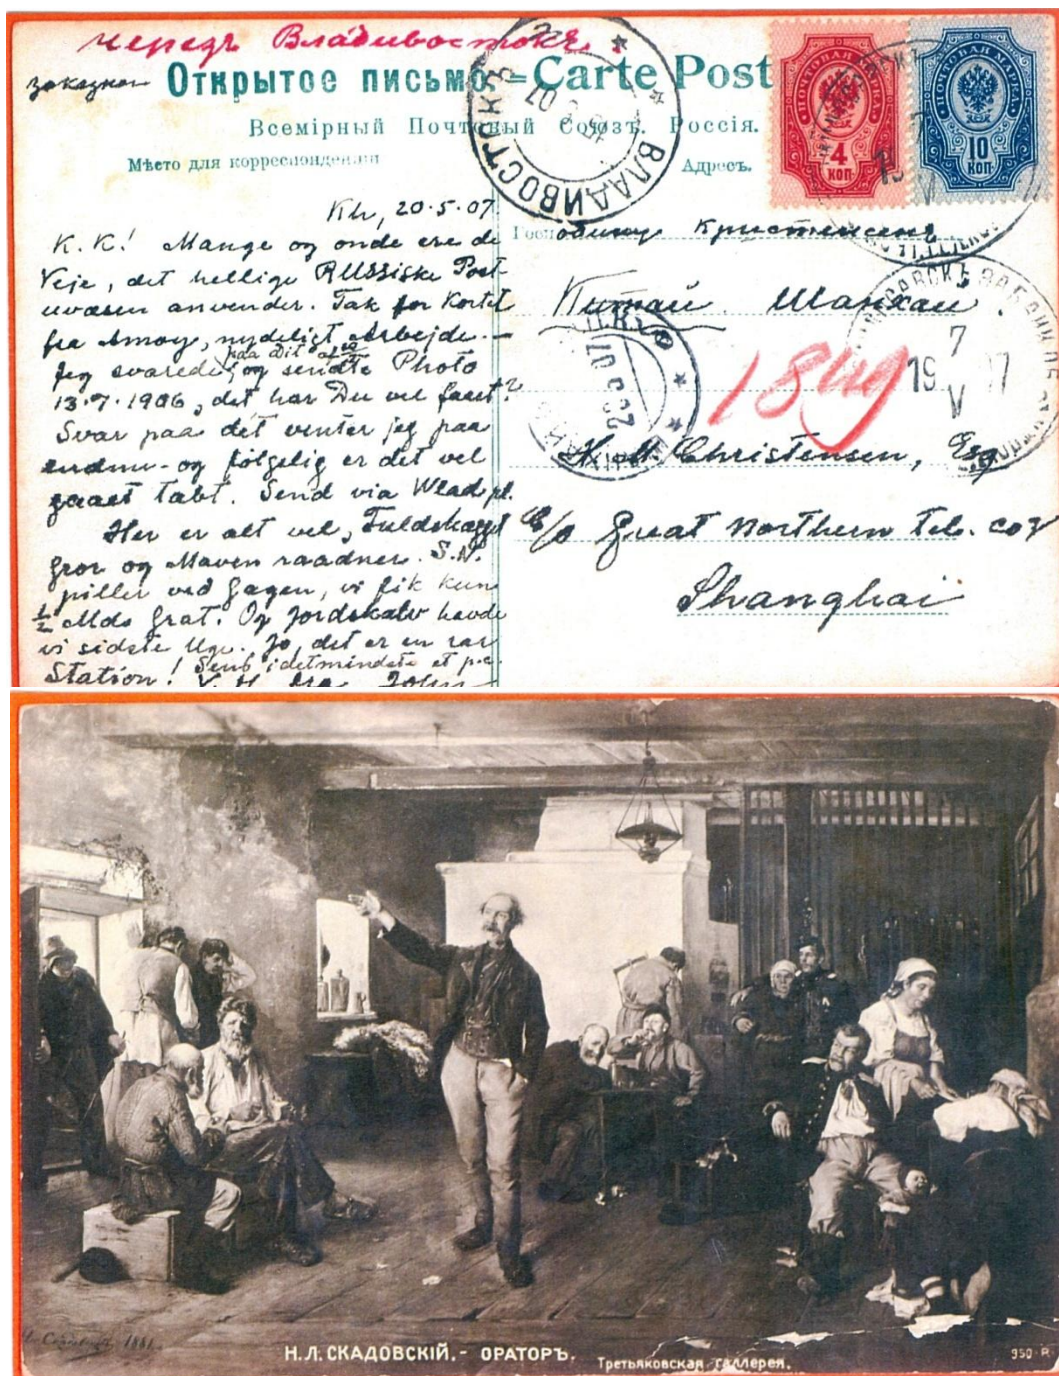 черезъ Владивостокъ.
заказное Открытое письмо = Carte Post
Всемірный Почтовый Союзъ. Россія.
Мѣсто для корреспонденціи
Адресъ.
ПОЧТОВАЯ МАРКА
4 КОП
ПОЧТОВАЯ МАРКА
10 КОП
ВЛАДИВОСТОКЪ
Kh, 20.5.07
K. K.! Mange og onde ere de
Veje, det hellige RUSSiske Post-
uvæsen anvender. Tak for Kortet
fra Amoy, nydeligt Arbejde. —
paa Dit
Jeg svarede, og sendte Photo
13.7.1906, det har Du vel faaet?
Svar paa det venter jeg paa
endnu - og følgelig er det vel
gaaet tabt. Send via Wlad
Her er alt vel, Fuldskægget
gror og Maven raadner. S.N.
piller ved Gagen, vi fik kun
½ Mds Grat. Og Jordskælv havde
vi sidste Uge. Jo, det er en rar
Station! Send idetmindste et
Господину Кристенсенъ
Китай Шанхай.
19 7 V 07
1849
H. Christensen, Esq
c/o Great Northern Tel. Coy
Shanghai
1881
Н. Л. СКАДОВСКІЙ. - ОРАТОРЪ.
Третьяковская галлерея.
950-R.